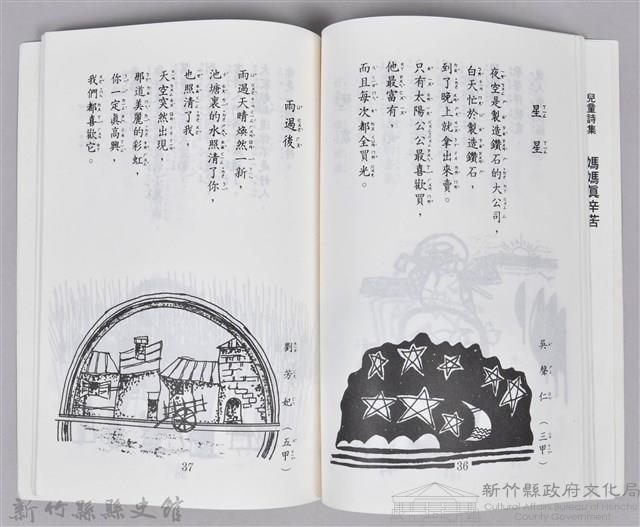 兒童詩集　媽媽眞辛苦
星星
吳聲仁（三甲）
夜空是製造鑽石的大公司，
白天忙於製造鑽石，
到了晚上就拿出來賣。
只有太陽公公最喜歡買，
他最富有，
而且每次都全買光。
36
雨過後
劉芳妃（五甲）
雨過天晴煥然一新，
池塘裏的水照清了你，
也照清了我，
天空突然出現，
那道美麗的彩虹，
你一定眞高興，
我們都喜歡它。
37
新竹縣縣史館
新竹縣政府文化局
Cultural Affairs Bureau of Hsinchu
County Government